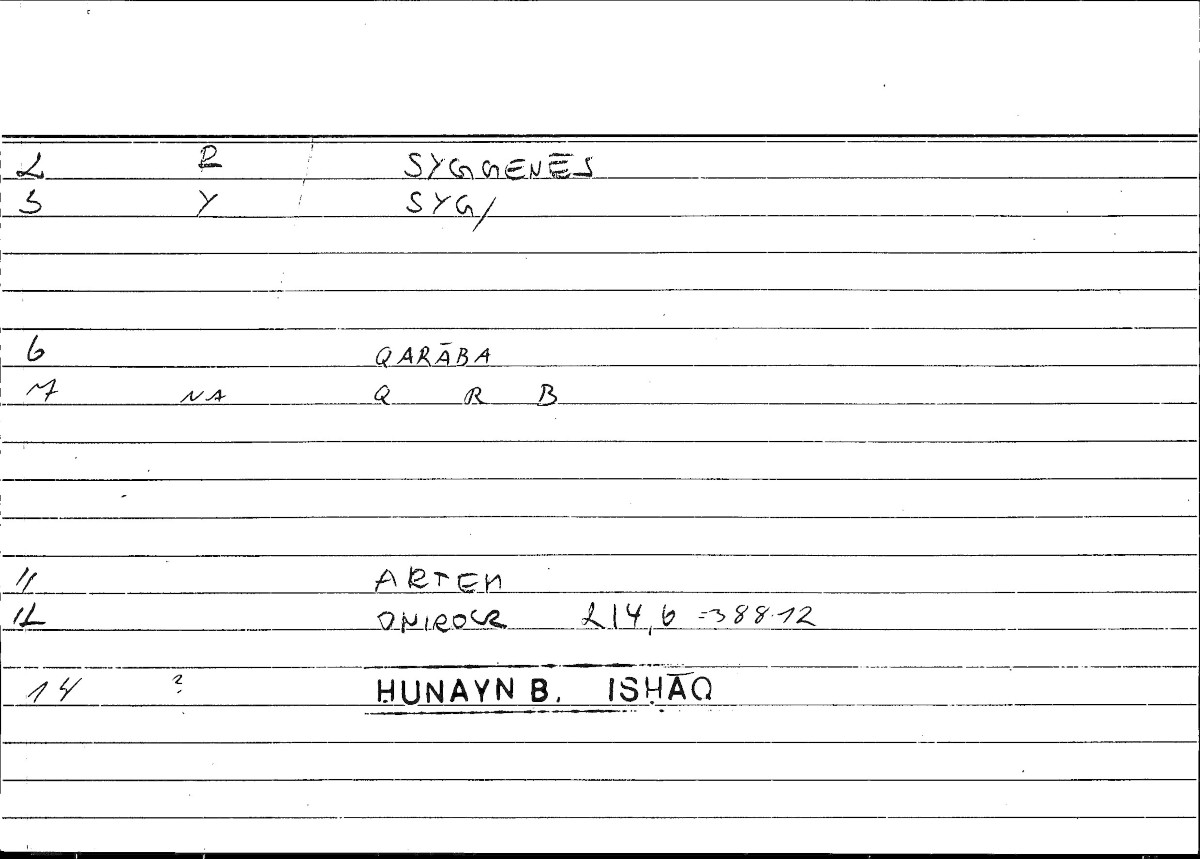 2 R SYGGENĒS
3 Y SYG/
6 QARĀBA
7 NA Q R B
11 ARTEM
12 ONIROCR 214,6 = 388.12
14 ? ḤUNAYN B. ISḤĀQ